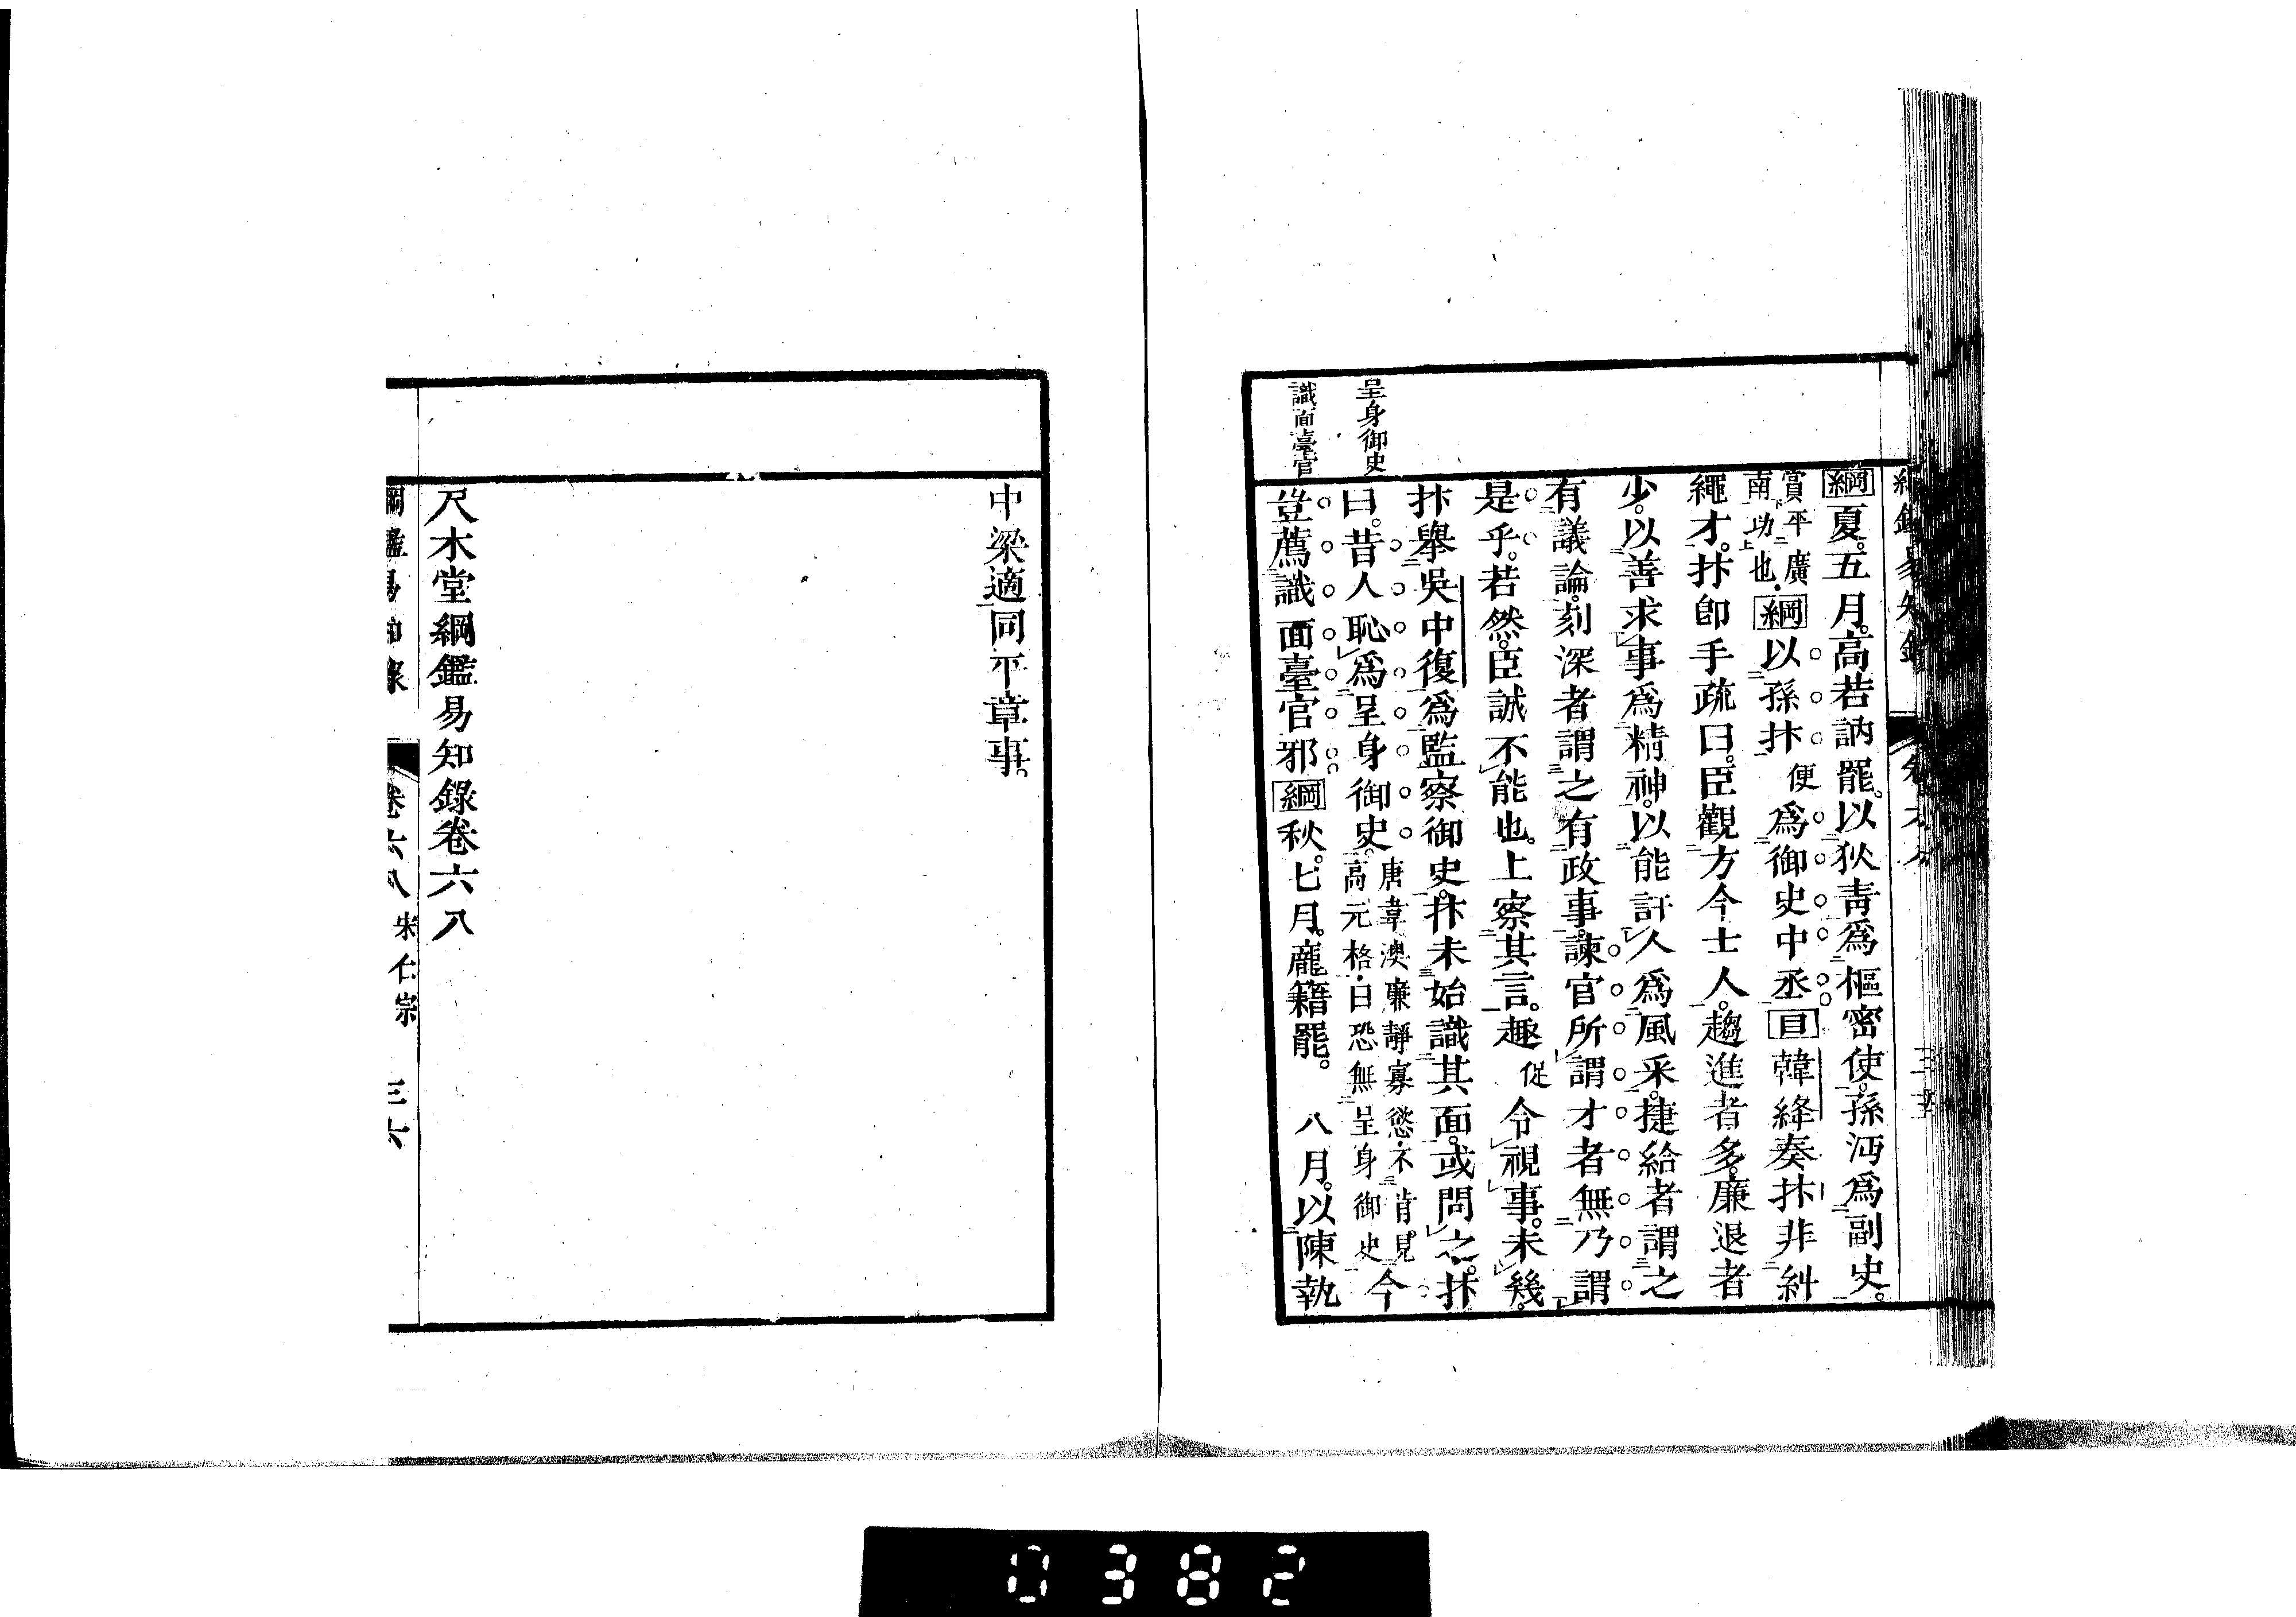 綱夏。五月。高若訥罷。以狄青爲樞密使。孫沔爲副史。
賞平廣南功也。綱以孫抃便爲御史中丞目韓絳奏抃非糾
繩才。抃卽手疏曰。臣觀方今士人。趨進者多。廉退者
少。以善求事爲精神。以能訐人爲風采。捷給者謂之
有議論。刻深者謂之有政事。諫官所謂才者無乃謂
是乎。若然。臣誠不能也。上察其言。趣促令視事。未幾。
抃舉吳中復爲監察御史。抃未始識其面。或問之。抃
曰。昔人恥爲呈身御史。唐韋澳廉靜寡慾。不肯見高元格。曰恐無呈身御史今
豈薦識面臺官邪綱秋。七月。龐籍罷。 八月。以陳執
呈身御史
識面臺官
中梁適同平章事。
尺木堂綱鑑易知錄卷六八
綱鑑易知錄 卷六八 宋仁宗 三六
0382